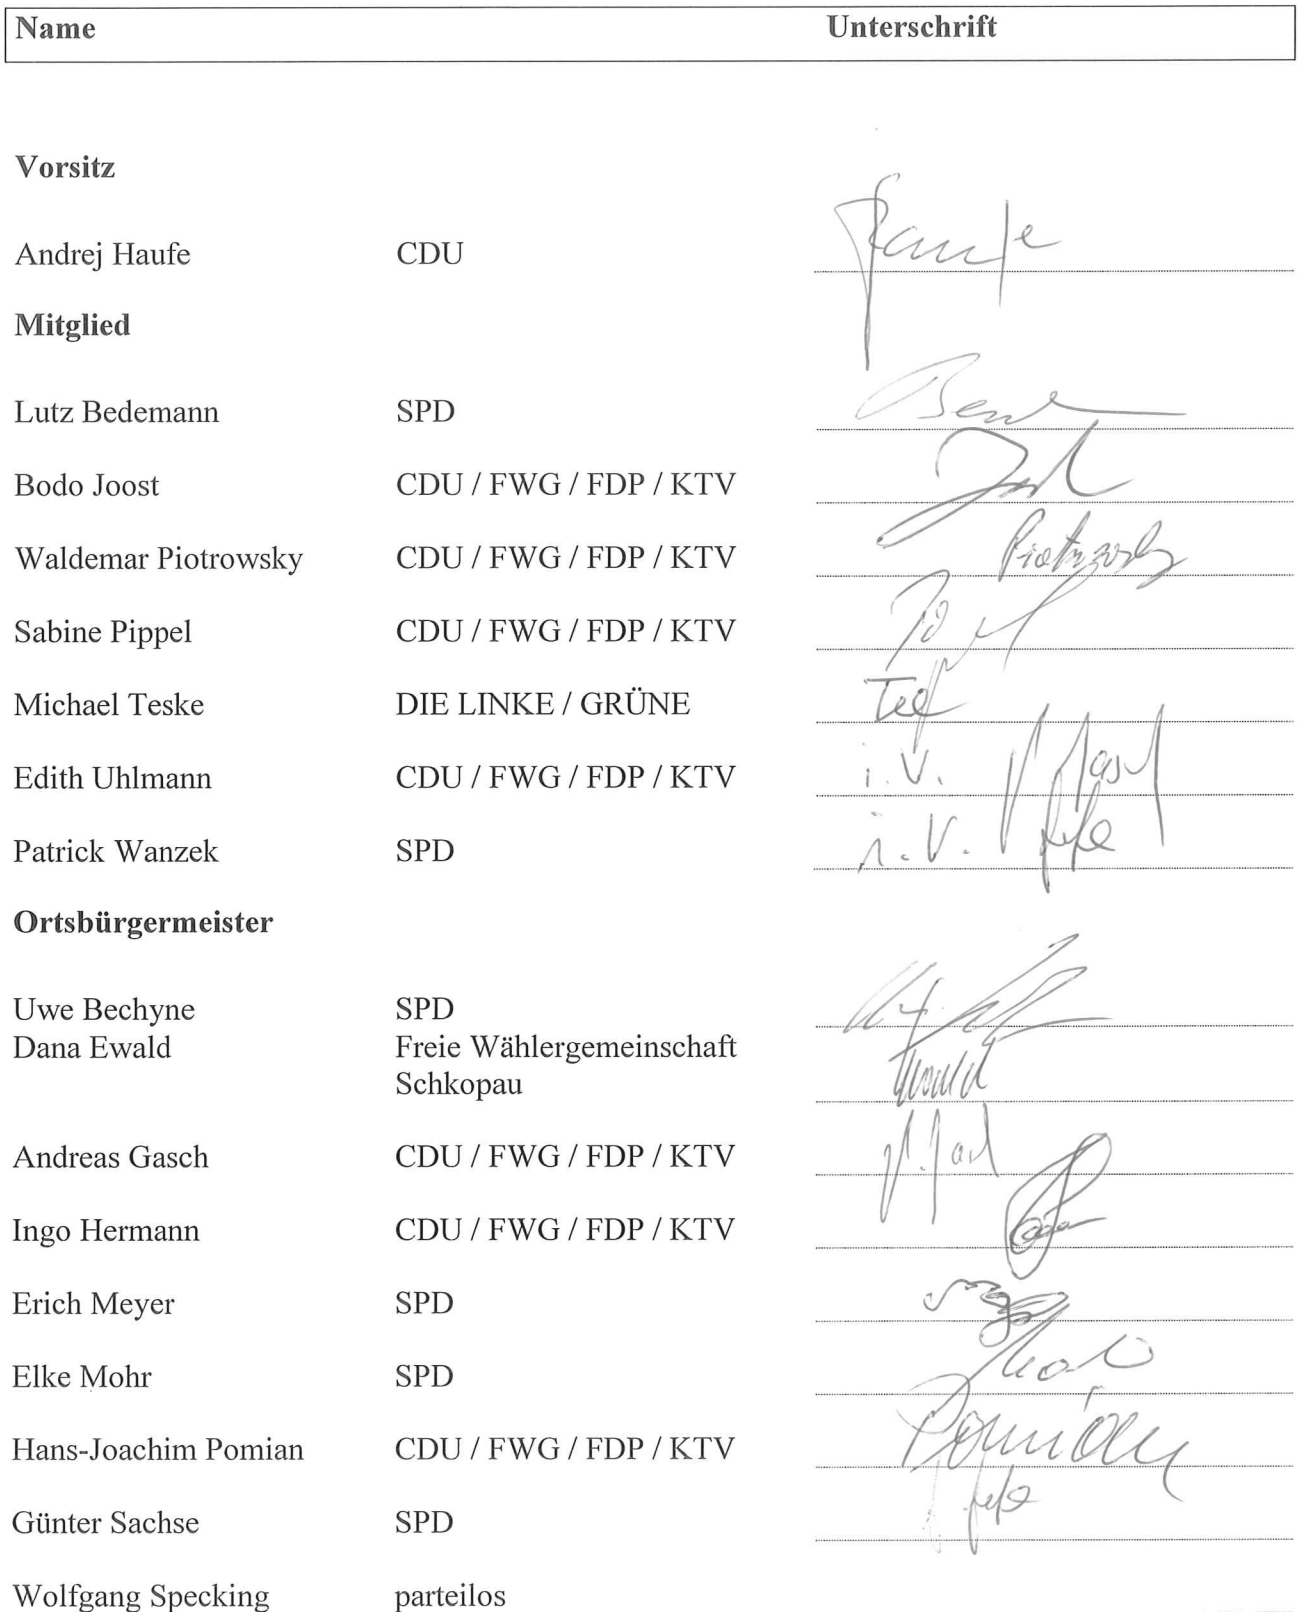 Name Unterschrift
Vorsitz
Andrej Haufe CDU Haufe
Mitglied
Lutz Bedemann SPD
Bodo Joost CDU / FWG / FDP / KTV
Waldemar Piotrowsky CDU / FWG / FDP / KTV Piotrowsky
Sabine Pippel CDU / FWG / FDP / KTV
Michael Teske DIE LINKE / GRÜNE
Edith Uhlmann CDU / FWG / FDP / KTV i.V.
Patrick Wanzek SPD i.V.
Ortsbürgermeister
Uwe Bechyne SPD
Dana Ewald Freie Wählergemeinschaft
Schkopau
Andreas Gasch CDU / FWG / FDP / KTV
Ingo Hermann CDU / FWG / FDP / KTV
Erich Meyer SPD
Elke Mohr SPD
Hans-Joachim Pomian CDU / FWG / FDP / KTV Pomian
Günter Sachse SPD
Wolfgang Specking parteilos